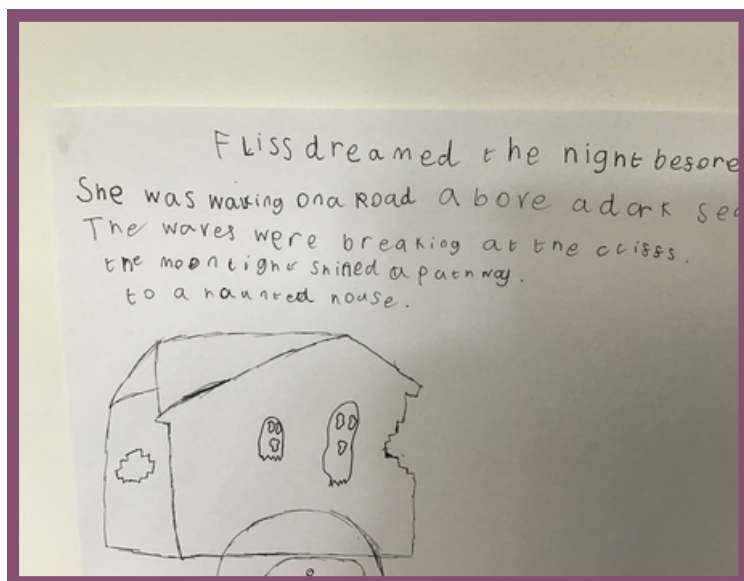 Fliss dreamed the night besore
She was waking ona Road above adark sea
The waves were breaking at the clisss.
the moonlight shined a pathway.
to a haunted house.